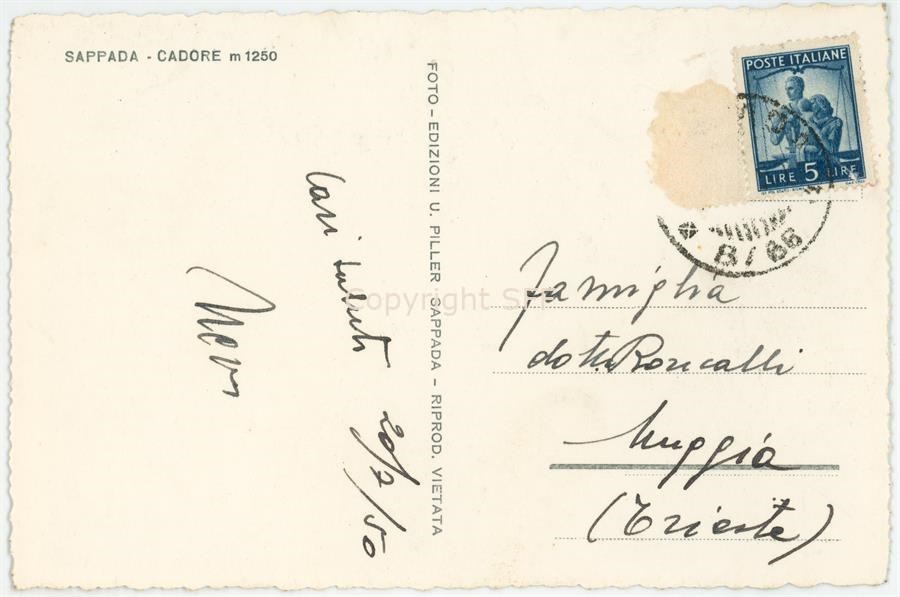 SAPPADA - CADORE m 1250
Cari saluti 20/2/50
FOTO - EDIZIONI U. PILLER - SAPPADA - RIPROD. VIETATA
POSTE ITALIANE
LIRE 5 LIRE
Famiglia
dott. Roncalli
Muggia
(Trieste)
Copyright